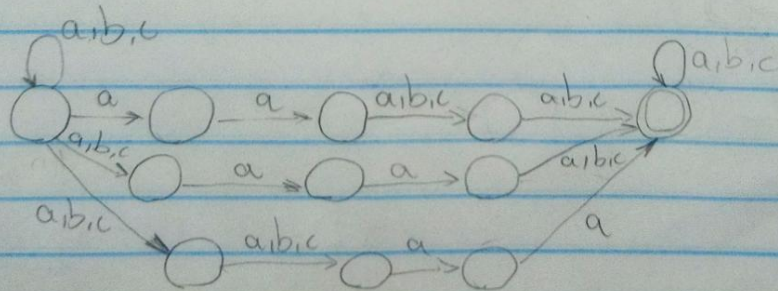 a,b,c
a,b,c
a a a,b,c a,b,c
a,b,c a a a,b,c
a,b,c a,b,c a a